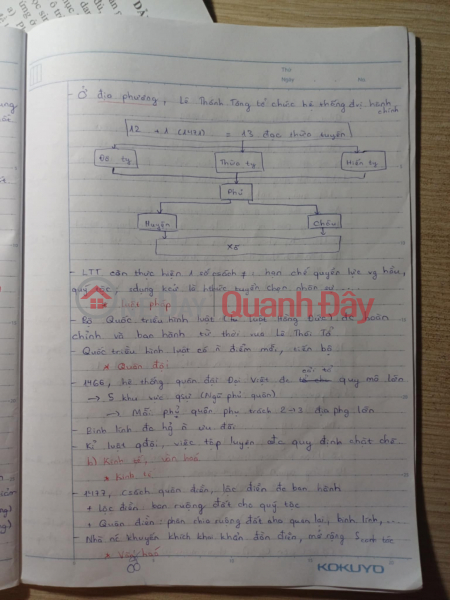 - Ở địa phương, Lê Thánh Tông tổ chức hệ thống đvị hành chính
12 + 1 (1471) = 13 đạo thừa tuyên
Đô ty
Thừa ty
Hiến ty
Phủ
Huyện
Châu
Xã
- LTT còn thực hiện 1 số csách # : hạn chế quyền lực vg hầu,
quý tộc, tuyển chọn nhân sự
* Luật pháp
Quanh Đây
- Bộ Quốc triều hình luật Hồng Đức đc hoàn
chỉnh và ban hành từ thời vua Lê Thái Tổ
- Quốc triều hình luật có n điểm mới, tiến bộ
* Quân đội
- 1466, hệ thống quân đội Đại Việt đc quy mô lớn
→ 5 khu vực quân (Ngũ phủ quân)
→ Mỗi phủ quân phụ trách 2→3 địa phg lớn
- Binh lính đc hg n ưu đãi
- Kỉ luật qđội, việc tập luyện đc quy định chặt chẽ
b) Kinh tế, văn hoá
* Kinh tế
- 1477, csách quân điền, lộc điền đc ban hành
+ Lộc điền: ban ruộng đất cho quý tộc
+ Quân điền: phân chia ruộng đất cho quan lại, binh lính, ....
- Nhà nc khuyến khích khai khẩn đồn điền, mở rộng S canh tác
* Văn hoá
KOKUYO